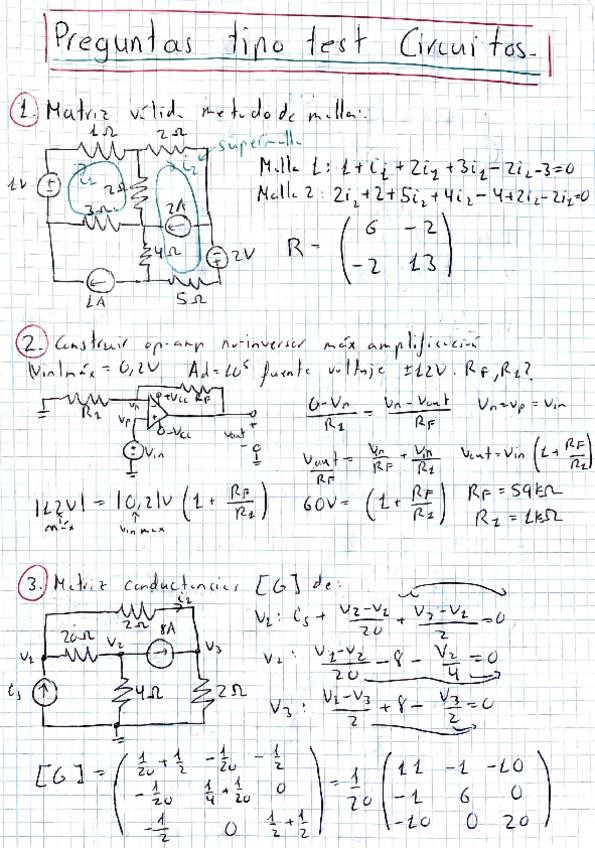 Preguntas tipo test Circuitos.
1. Matriz válida metodo de malla:
1Ω 2Ω
supermalla
i1 i2
1V 2Ω 3Ω 2A
4Ω 2V
1A 5Ω
Malla 1: 1+i1+2i1+3i1-2i2-3=0
Malla 2: 2i2+2+5i2+4i2-4+2i2-2i1=0
R = (6 -2
-2 13)
2. Construir op-amp no-inversor máx amplificación
|Vin|máx = 0,2V Ad=10⁵ fuente voltaje ±12V. RF, R1?
R1 Vn +Vcc RF
Vp -Vcc Vout
Vin
(0-Vn)/R1 = (Vn-Vout)/RF Vn=Vp=Vin
Vout/RF = Vin/RF + Vin/R1 Vout=Vin(1+RF/R1)
|12V| = |0,2|V (1+RF/R1) 60V = (1+RF/R1) RF = 59kΩ
máx Vin max R1 = 1kΩ
3. Matriz conductancias [G] de:
2Ω i2
V1 20Ω V2 8A V3
is 4Ω 2Ω
V1: is + (V2-V1)/20 + (V3-V1)/2 = 0
V2: (V1-V2)/20 - 8 - V2/4 = 0
V3: (V1-V3)/2 + 8 - V3/2 = 0
[G] = (1/20+1/2 -1/20 -1/2
-1/20 1/4+1/20 0
-1/2 0 1/2+1/2)
= 1/20 (11 -1 -10
-1 6 0
-10 0 20)